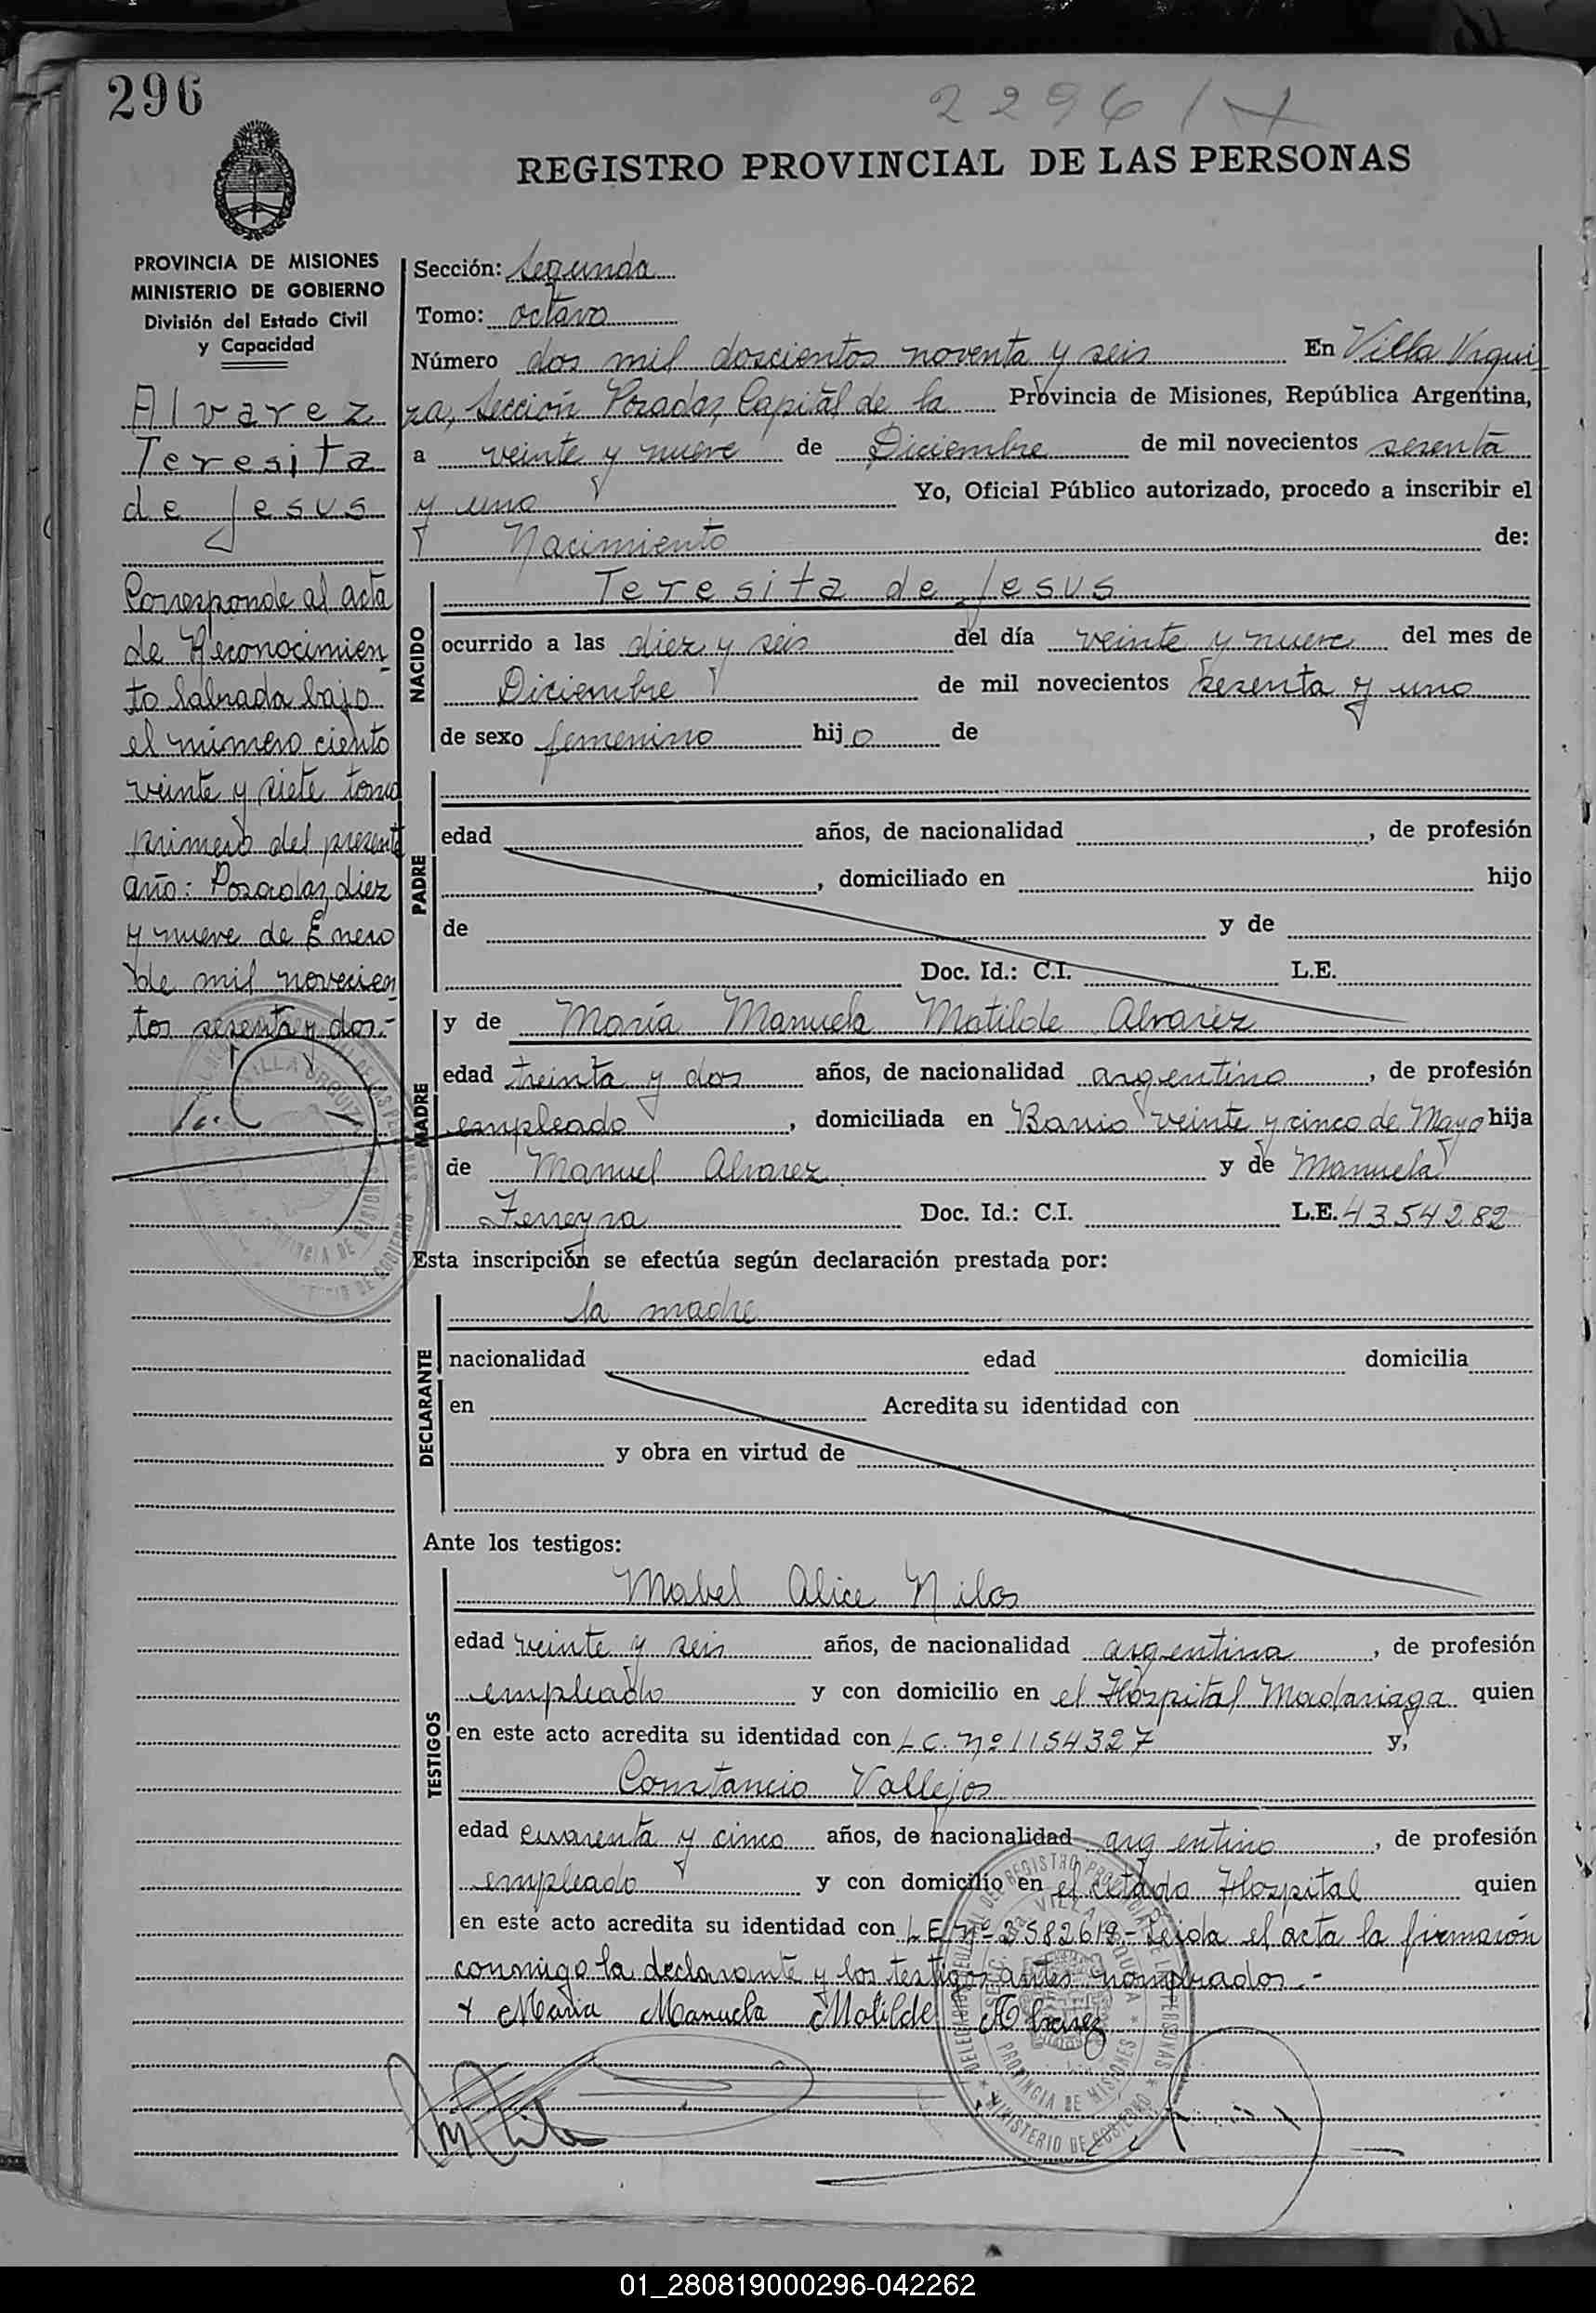 296
2296/X
REGISTRO PROVINCIAL DE LAS PERSONAS
PROVINCIA DE MISIONES
MINISTERIO DE GOBIERNO
División del Estado Civil
y Capacidad
Alvarez
Teresita
de Jesus
Corresponde al acta
de Reconocimien
to labrada bajo
el número ciento
veinte y siete tomo
primero del presente
año: Posadas, diez
y nueve de Enero
de mil novecien
tos sesenta y dos.-
Sección: Segunda
Tomo: octavo
Número dos mil doscientos noventa y seis En Villa Urqui
za, Sección Posadas, Capital de la Provincia de Misiones, República Argentina,
a veinte y nueve de Diciembre de mil novecientos sesenta
y uno Yo, Oficial Público autorizado, procedo a inscribir el
Nacimiento de:
NACIDO
Teresita de Jesus
ocurrido a las diez y seis del día veinte y nueve del mes de
Diciembre de mil novecientos sesenta y uno
de sexo femenino hijo de
PADRE
edad años, de nacionalidad , de profesión
, domiciliado en hijo
de y de
Doc. Id.: C.I. L.E.
MADRE
y de María Manuela Matilde Alvarez
edad treinta y dos años, de nacionalidad argentino , de profesión
empleado , domiciliada en Barrio veinte y cinco de Mayo hija
de Manuel Alvarez y de Manuela
Ferreyra Doc. Id.: C.I. L.E. 4354282
Esta inscripción se efectúa según declaración prestada por:
DECLARANTE
la madre
nacionalidad edad domicilia
en Acredita su identidad con
y obra en virtud de
Ante los testigos:
TESTIGOS
Mabel Alice Nilos
edad veinte y seis años, de nacionalidad argentina , de profesión
empleado y con domicilio en el Hospital Madariaga quien
en este acto acredita su identidad con L.C. Nº 1154327 y,
Constancio Vallejos
edad cuarenta y cinco años, de nacionalidad argentino , de profesión
empleado y con domicilio en el citado Hospital quien
en este acto acredita su identidad con L E Nº 3582619.- Leida el acta la firmarón
conmigo la declarante y los testigos antes nombrados.-
+ Maria Manuela Matilde Alvarez
01_280819000296-042262